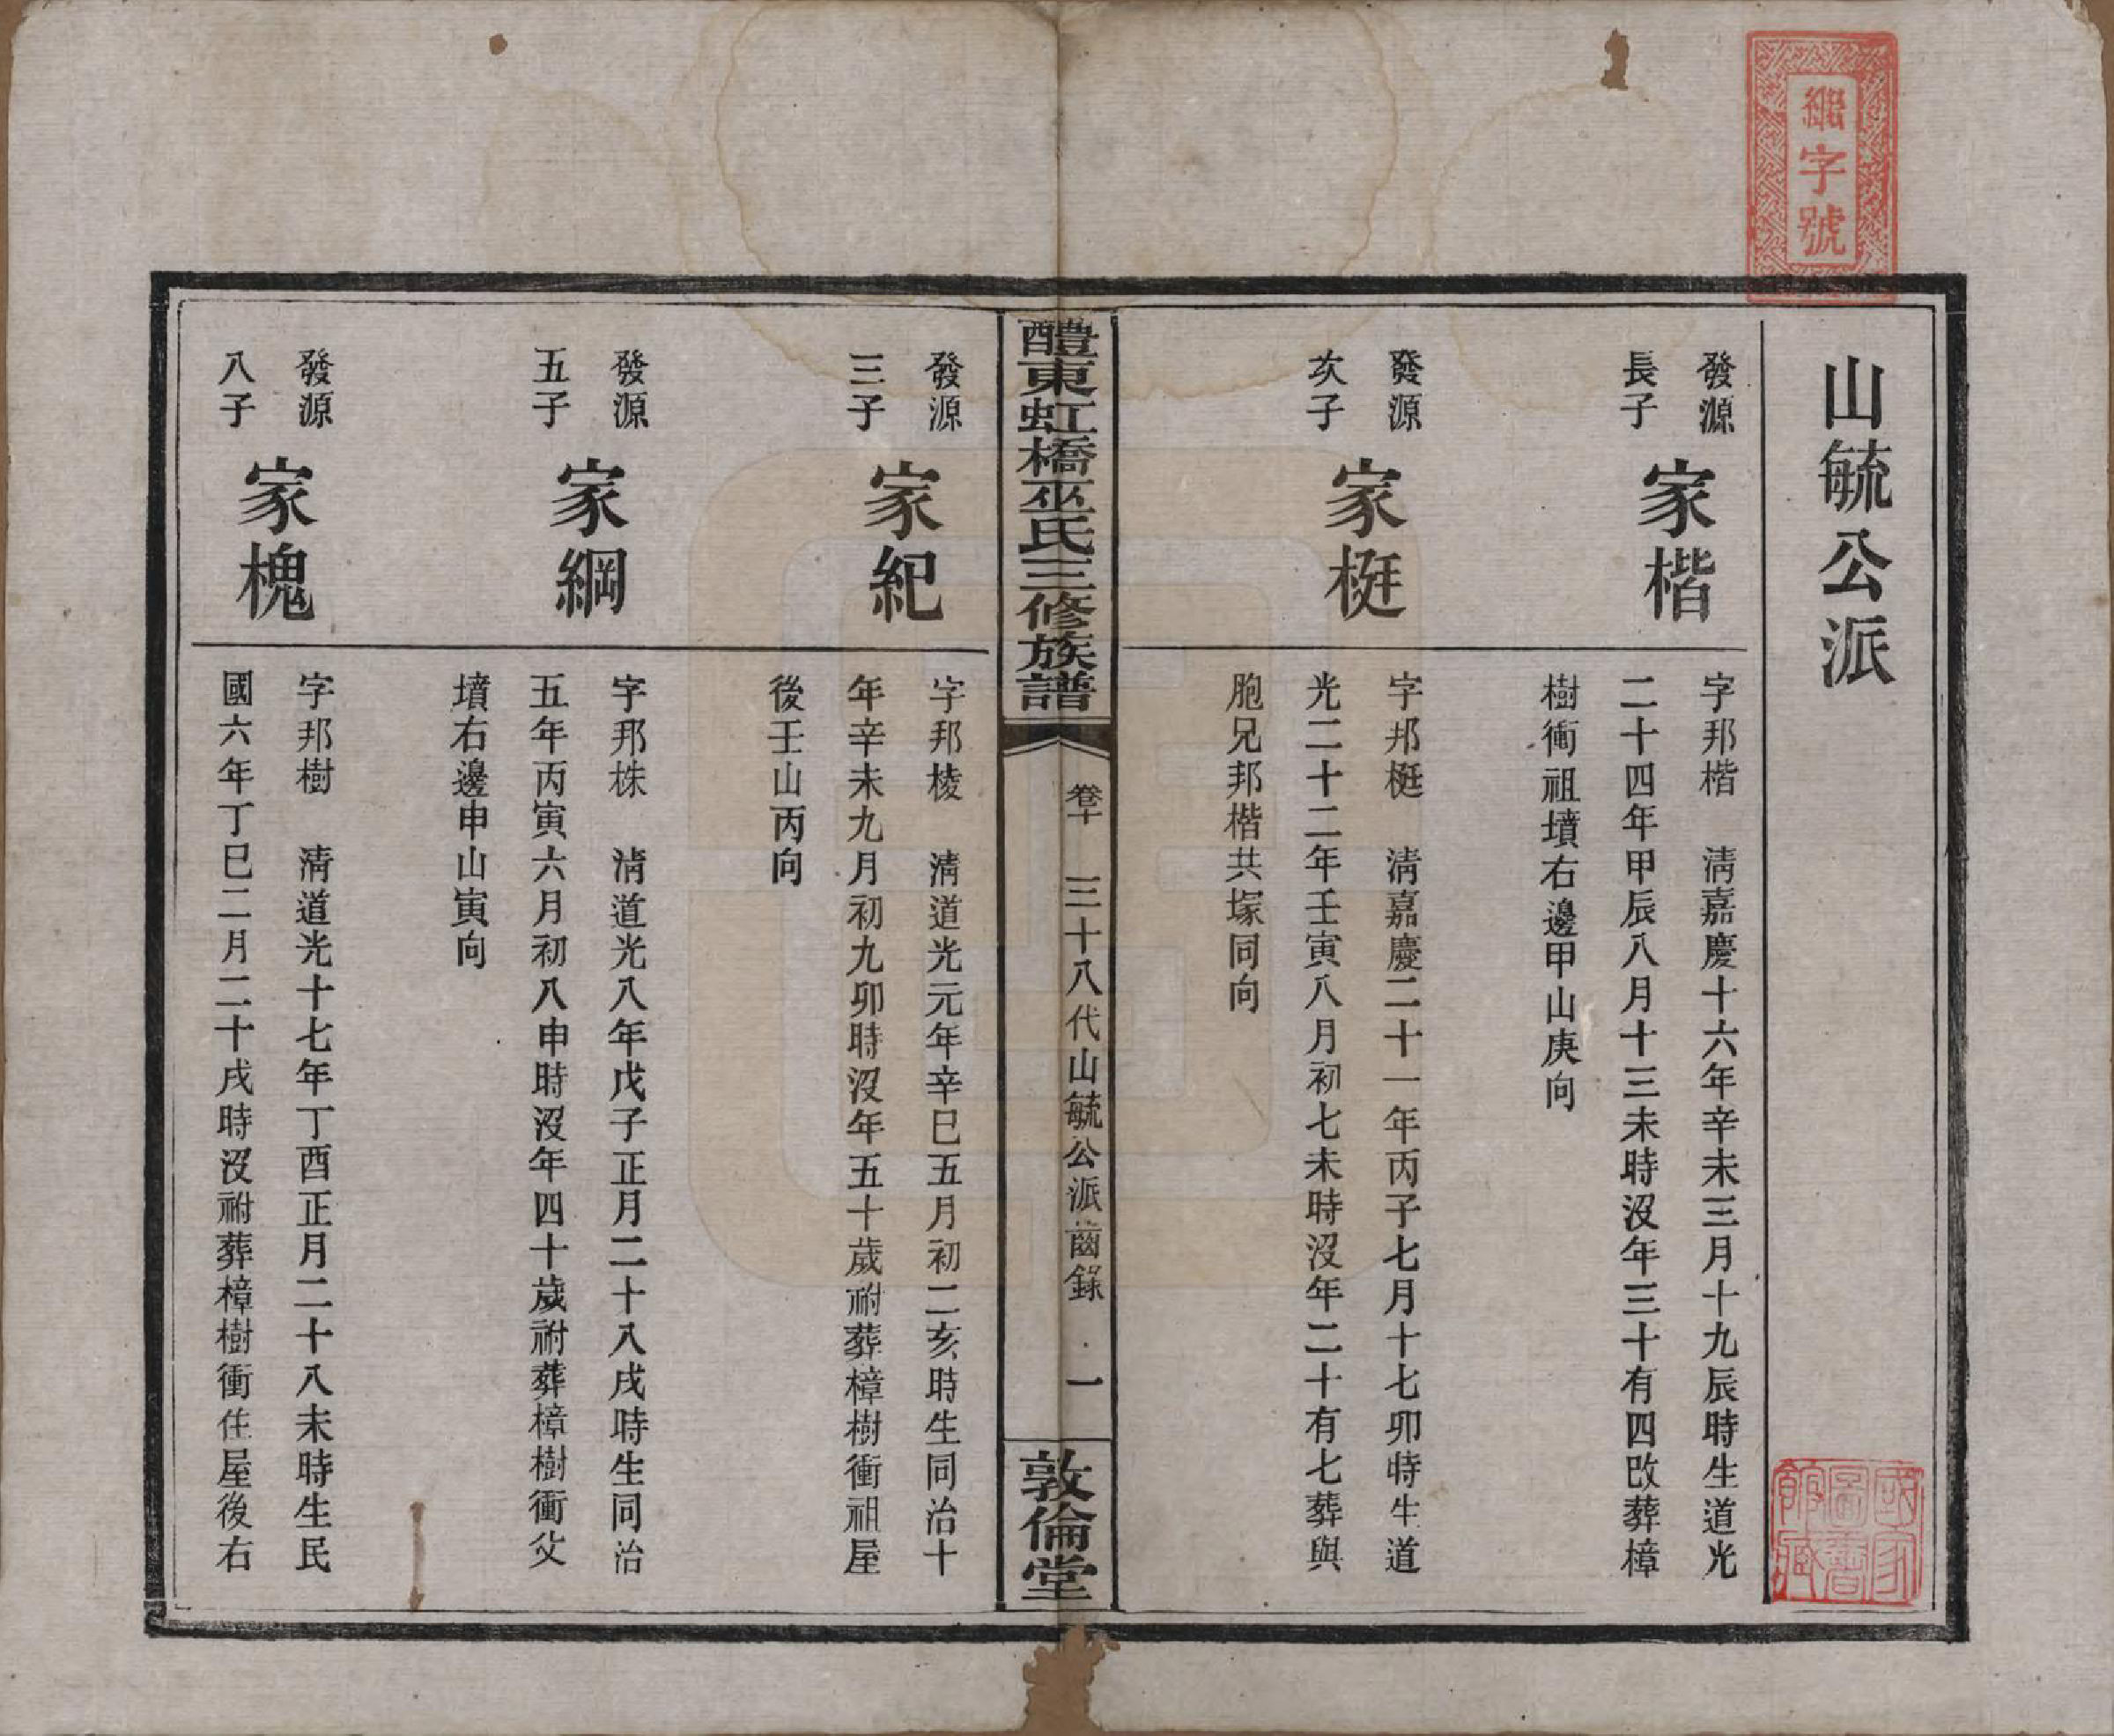 繩字號
山毓公派
發源
長子
家楷
字邦楷　淸嘉慶十六年辛未三月十九辰時生道光
二十四年甲辰八月十三未時沒年三十有四改葬樟
樹衝祖墳右邊甲山庚向
發源
次子
家梃
字邦梃　淸嘉慶二十一年丙子七月十七卯時生道
光二十二年壬寅八月初七未時沒年二十有七葬與
胞兄邦楷共塚同向
醴東虹橋巫氏三修族譜
卷十　三十八代山毓公派齒錄　一
敦倫堂
發源
三子
家紀
字邦棱　淸道光元年辛巳五月初二亥時生同治十
年辛未九月初九卯時沒年五十歲祔葬樟樹衝祖屋
後壬山丙向
發源
五子
家綱
字邦株　淸道光八年戊子正月二十八戌時生同治
五年丙寅六月初八申時沒年四十歲祔葬樟樹衝父
墳右邊申山寅向
發源
八子
家槐
字邦樹　淸道光十七年丁酉正月二十八未時生民
國六年丁巳二月二十戌時沒祔葬樟樹衝住屋後右
國家圖書館藏